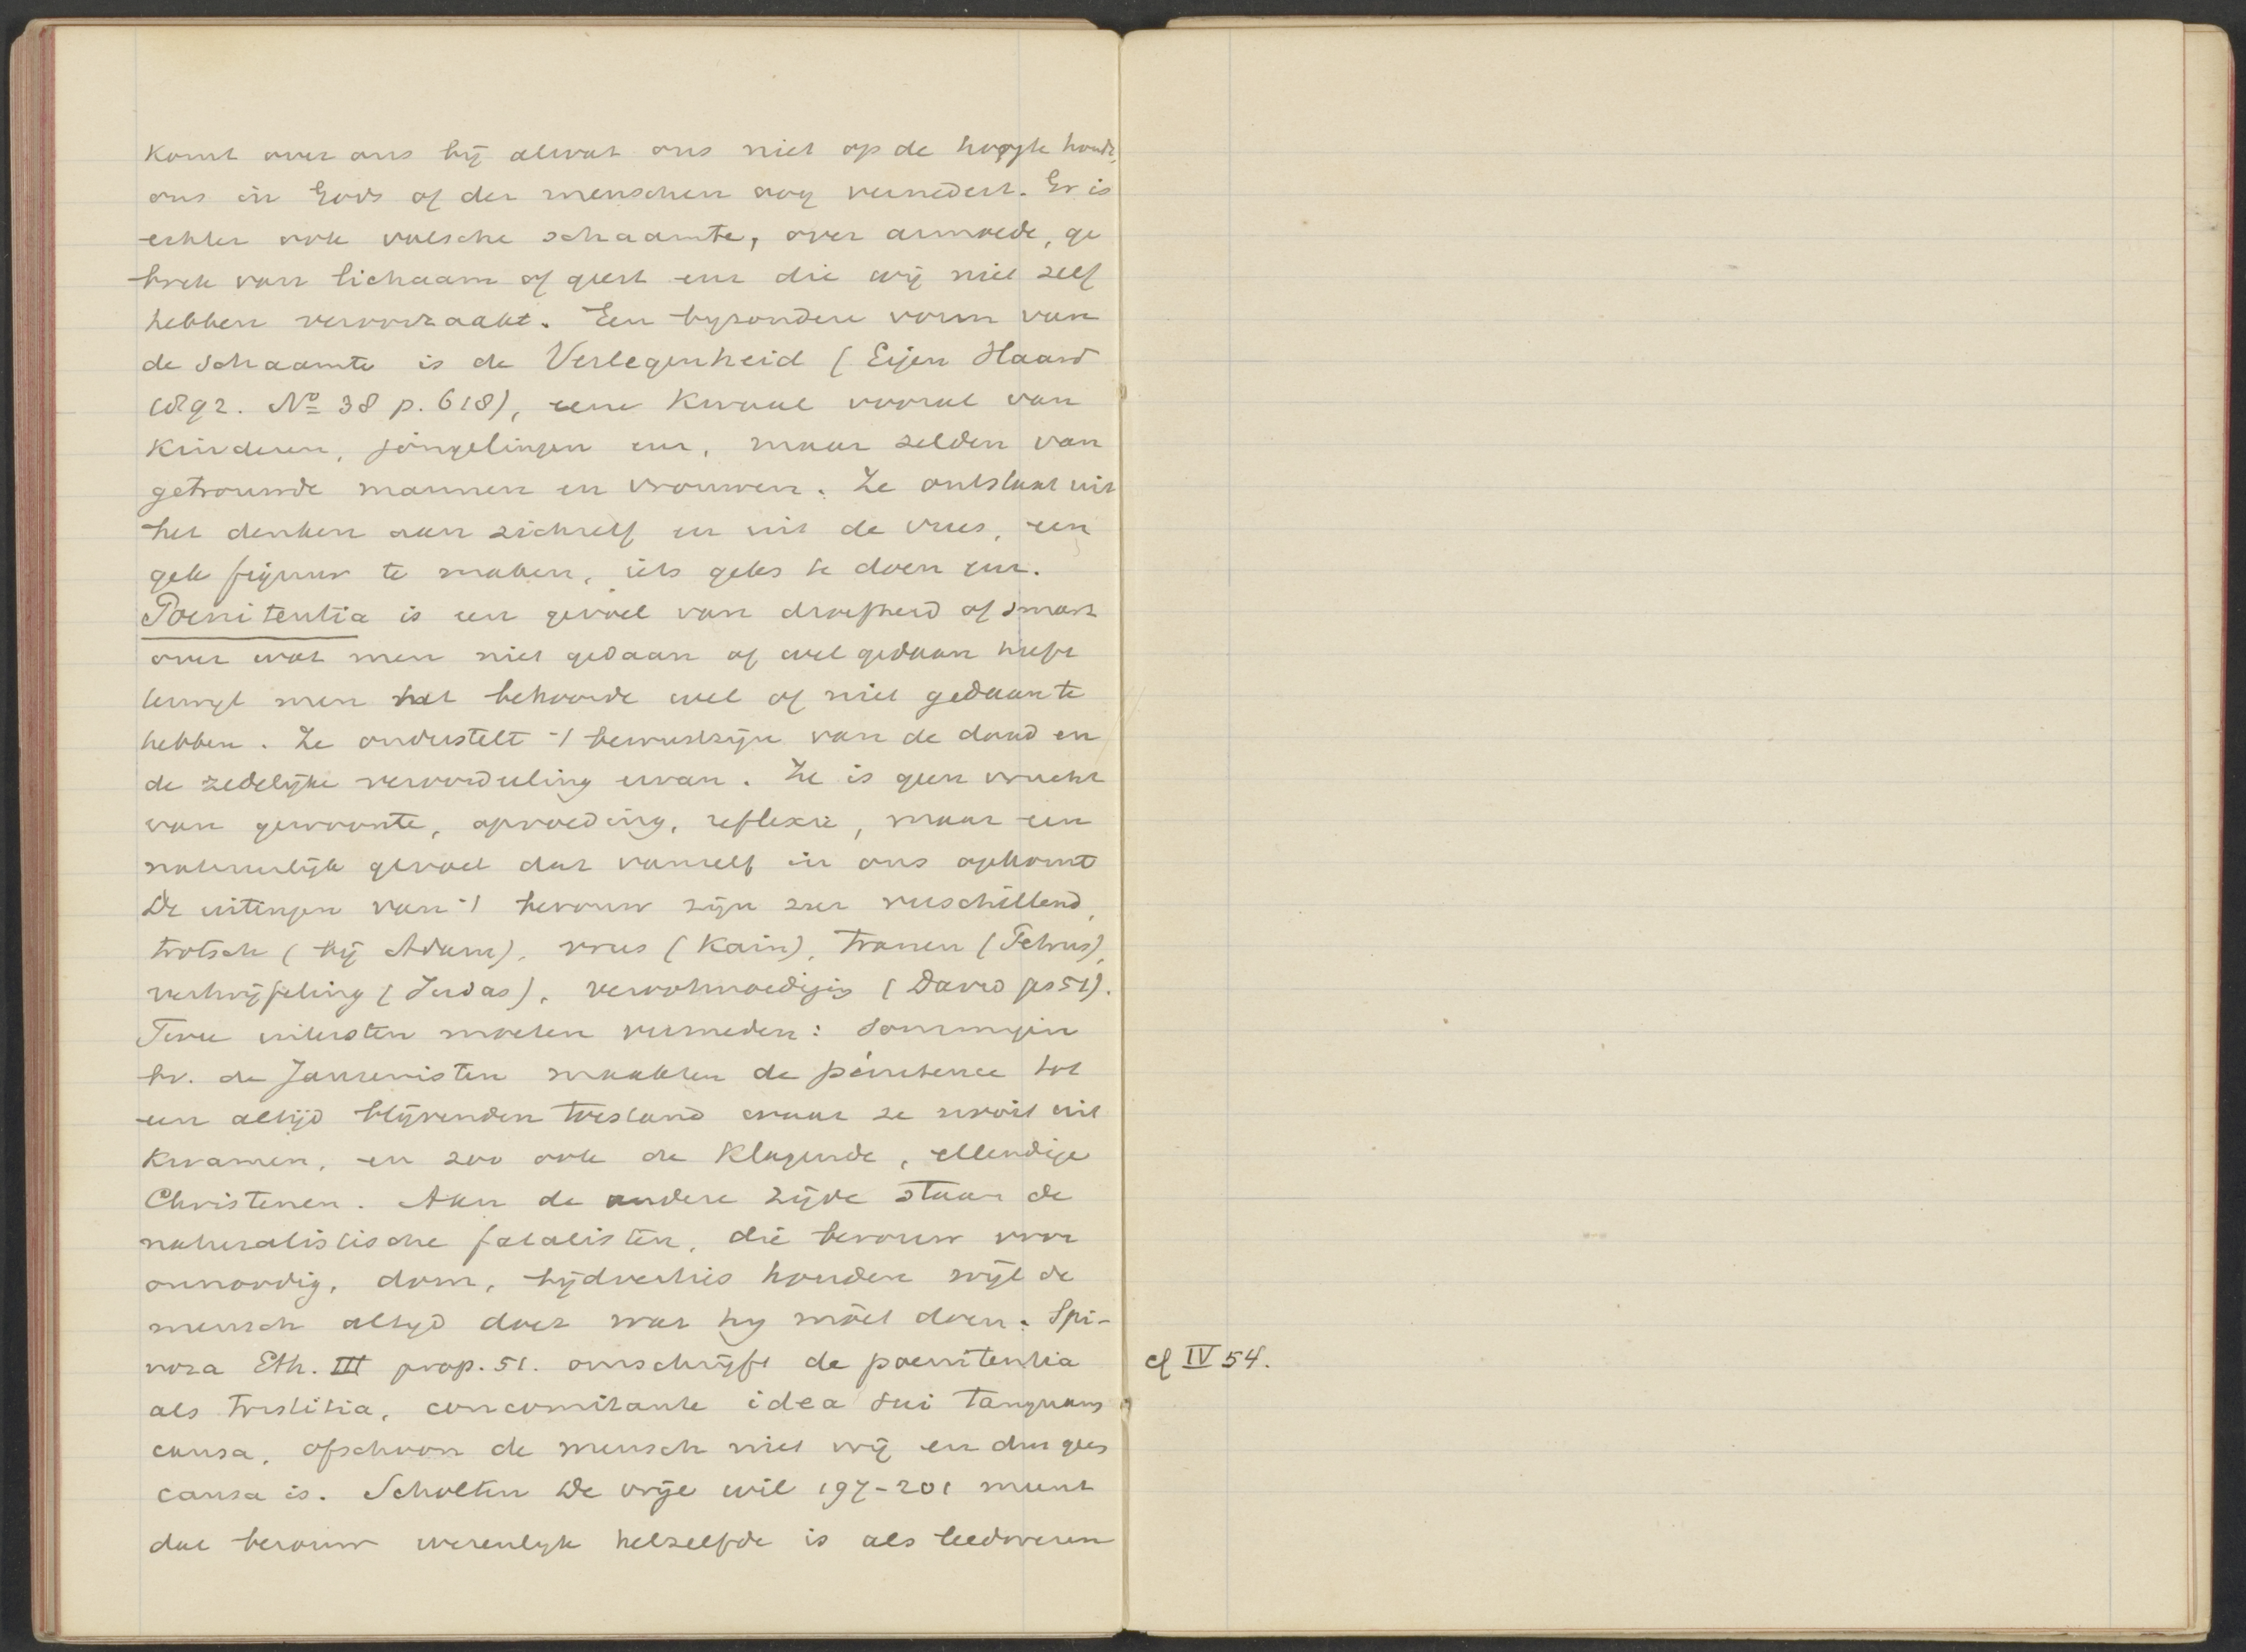 komt over ons bij alwat ons niet op de hoogte houdt,
ons in Gods of der menschen oog vernedert. Er is
echter ook valsche schaamte, over armoede, ge
brek van lichaam of geest enz die wij niet zelf
hebben veroorzaakt. Een byzondere vorm van
de schaamte is de Verlegenheid (Eigen Haard
1892. No 38 p. 618), eene kwaal vooral van
kinderen, jongelingen enz, maar zelden van
getrouwde mannen en vrouwen. Ze ontstaat uit
het denken aan zichzelf en uit de vrees, een
gek figuur te maken, iets geks te doen enz.
Poenitentia is een gevoel van droefheid of smart
over wat men niet gedaan of wel gedaan heeft
terwijl men het behoorde wel of niet gedaan te
hebben. Ze onderstelt 't bewustzijn van de daad en
de zedelijke veroordeeling ervan. Ze is geen vrucht
van gewoonte, opvoeding, reflexie, maar een
natuurlijk gevoel dat vanzelf in ons opkomt
De uitingen van 't berouw zijn zeer verschillend,
trotsch (bij Adam), vrees (Kain), tranen (Petrus),
vertwijfeling (Judas), verootmoediging (David ps 51).
Twee uitersten moeten vermeden: sommigen
bv. de Jansenisten maakten de pénitence tot
een altijd blijvenden toestand waar ze nooit uit
kwamen, en zoo ook de klagende, ellendige
Christenen. Aan de andere zijde staan de
naturalistische fatalisten, die berouw voor
onnoodig, dom, tijdverlies houden wijl de
mensch altijd doet wat hy móet doen. Spi-
noza Eth. III prop. 51. omschrijft de poenitentia
als tristitia, concomitante idea sui tanquam
causa, ofschoon de mensch niet vrij en dus geen
causa is. Scholten De vrije wil 197-201 meent
dat berouw wezenlijk hetzelfde is als leedwezen
cf IV 54.